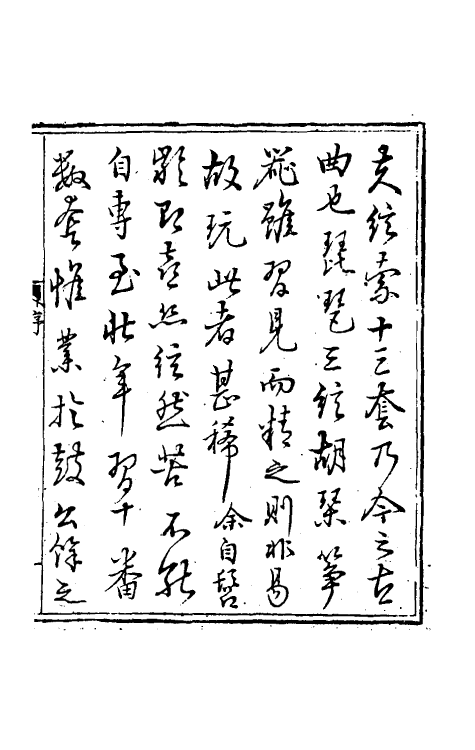 夫弦索十三套乃今之古
曲也琵琶三弦胡琴箏
器雖習見而精之則非易
故玩此者甚稀余自髫
齡即喜絲弦然苦不能
自專至壯年習十番
數套惟業於鼓公餘之
序